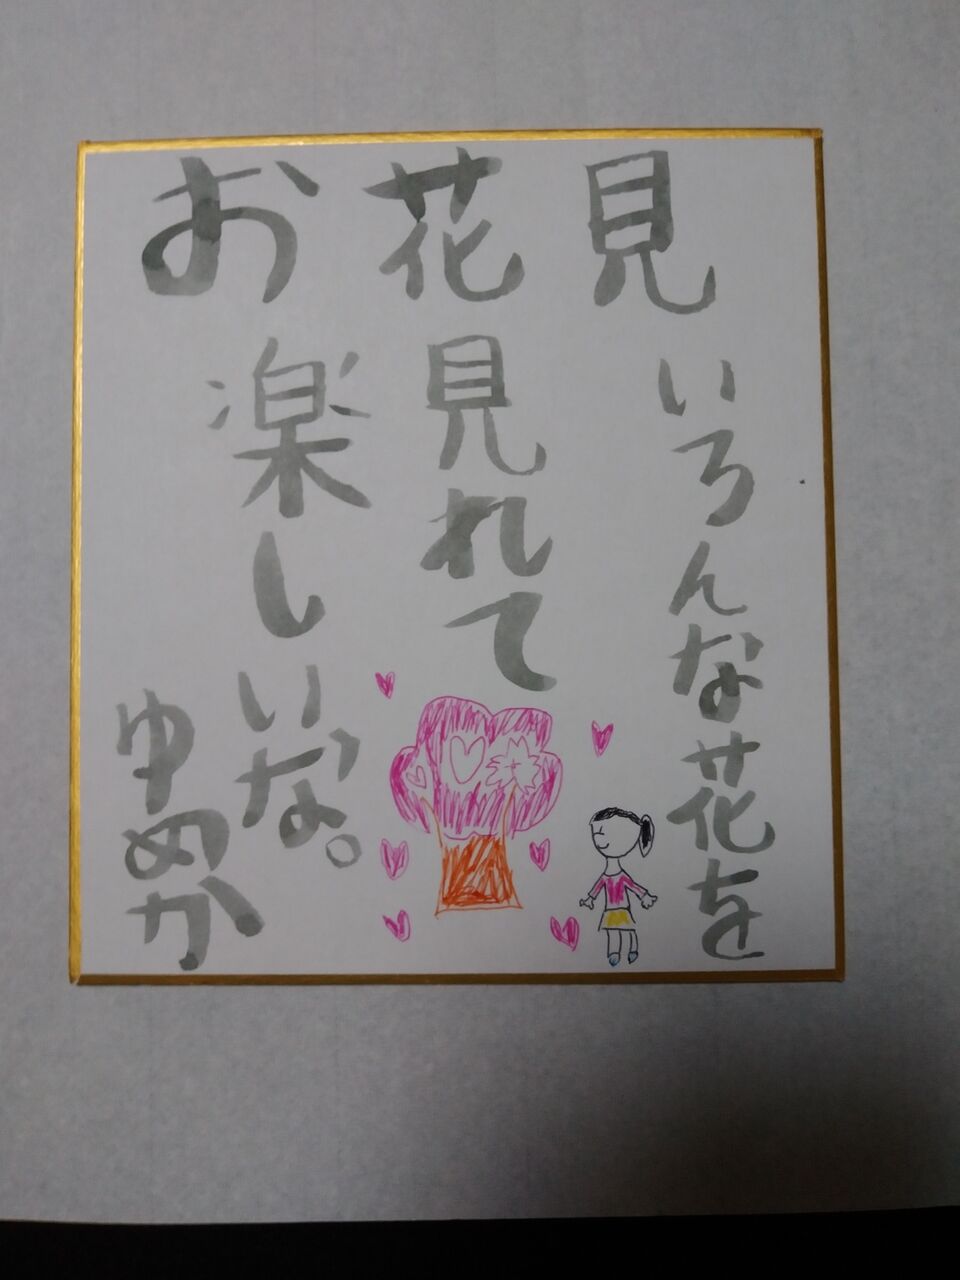 お花見
いろんな花を
見れて
楽しいな。
ゆめか